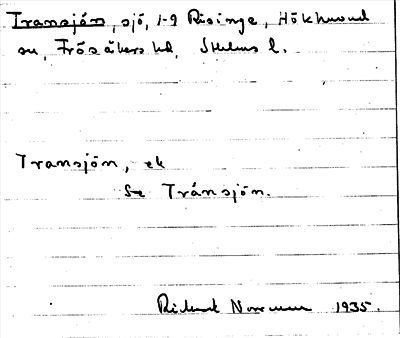 Transjön, sjö, 1-9 Risinge, Hökhuvud
sn, Frösåkers hd, Sthlms l.
Transjön, ek
Se Trånsjön.
Rickard Norrman 1935.